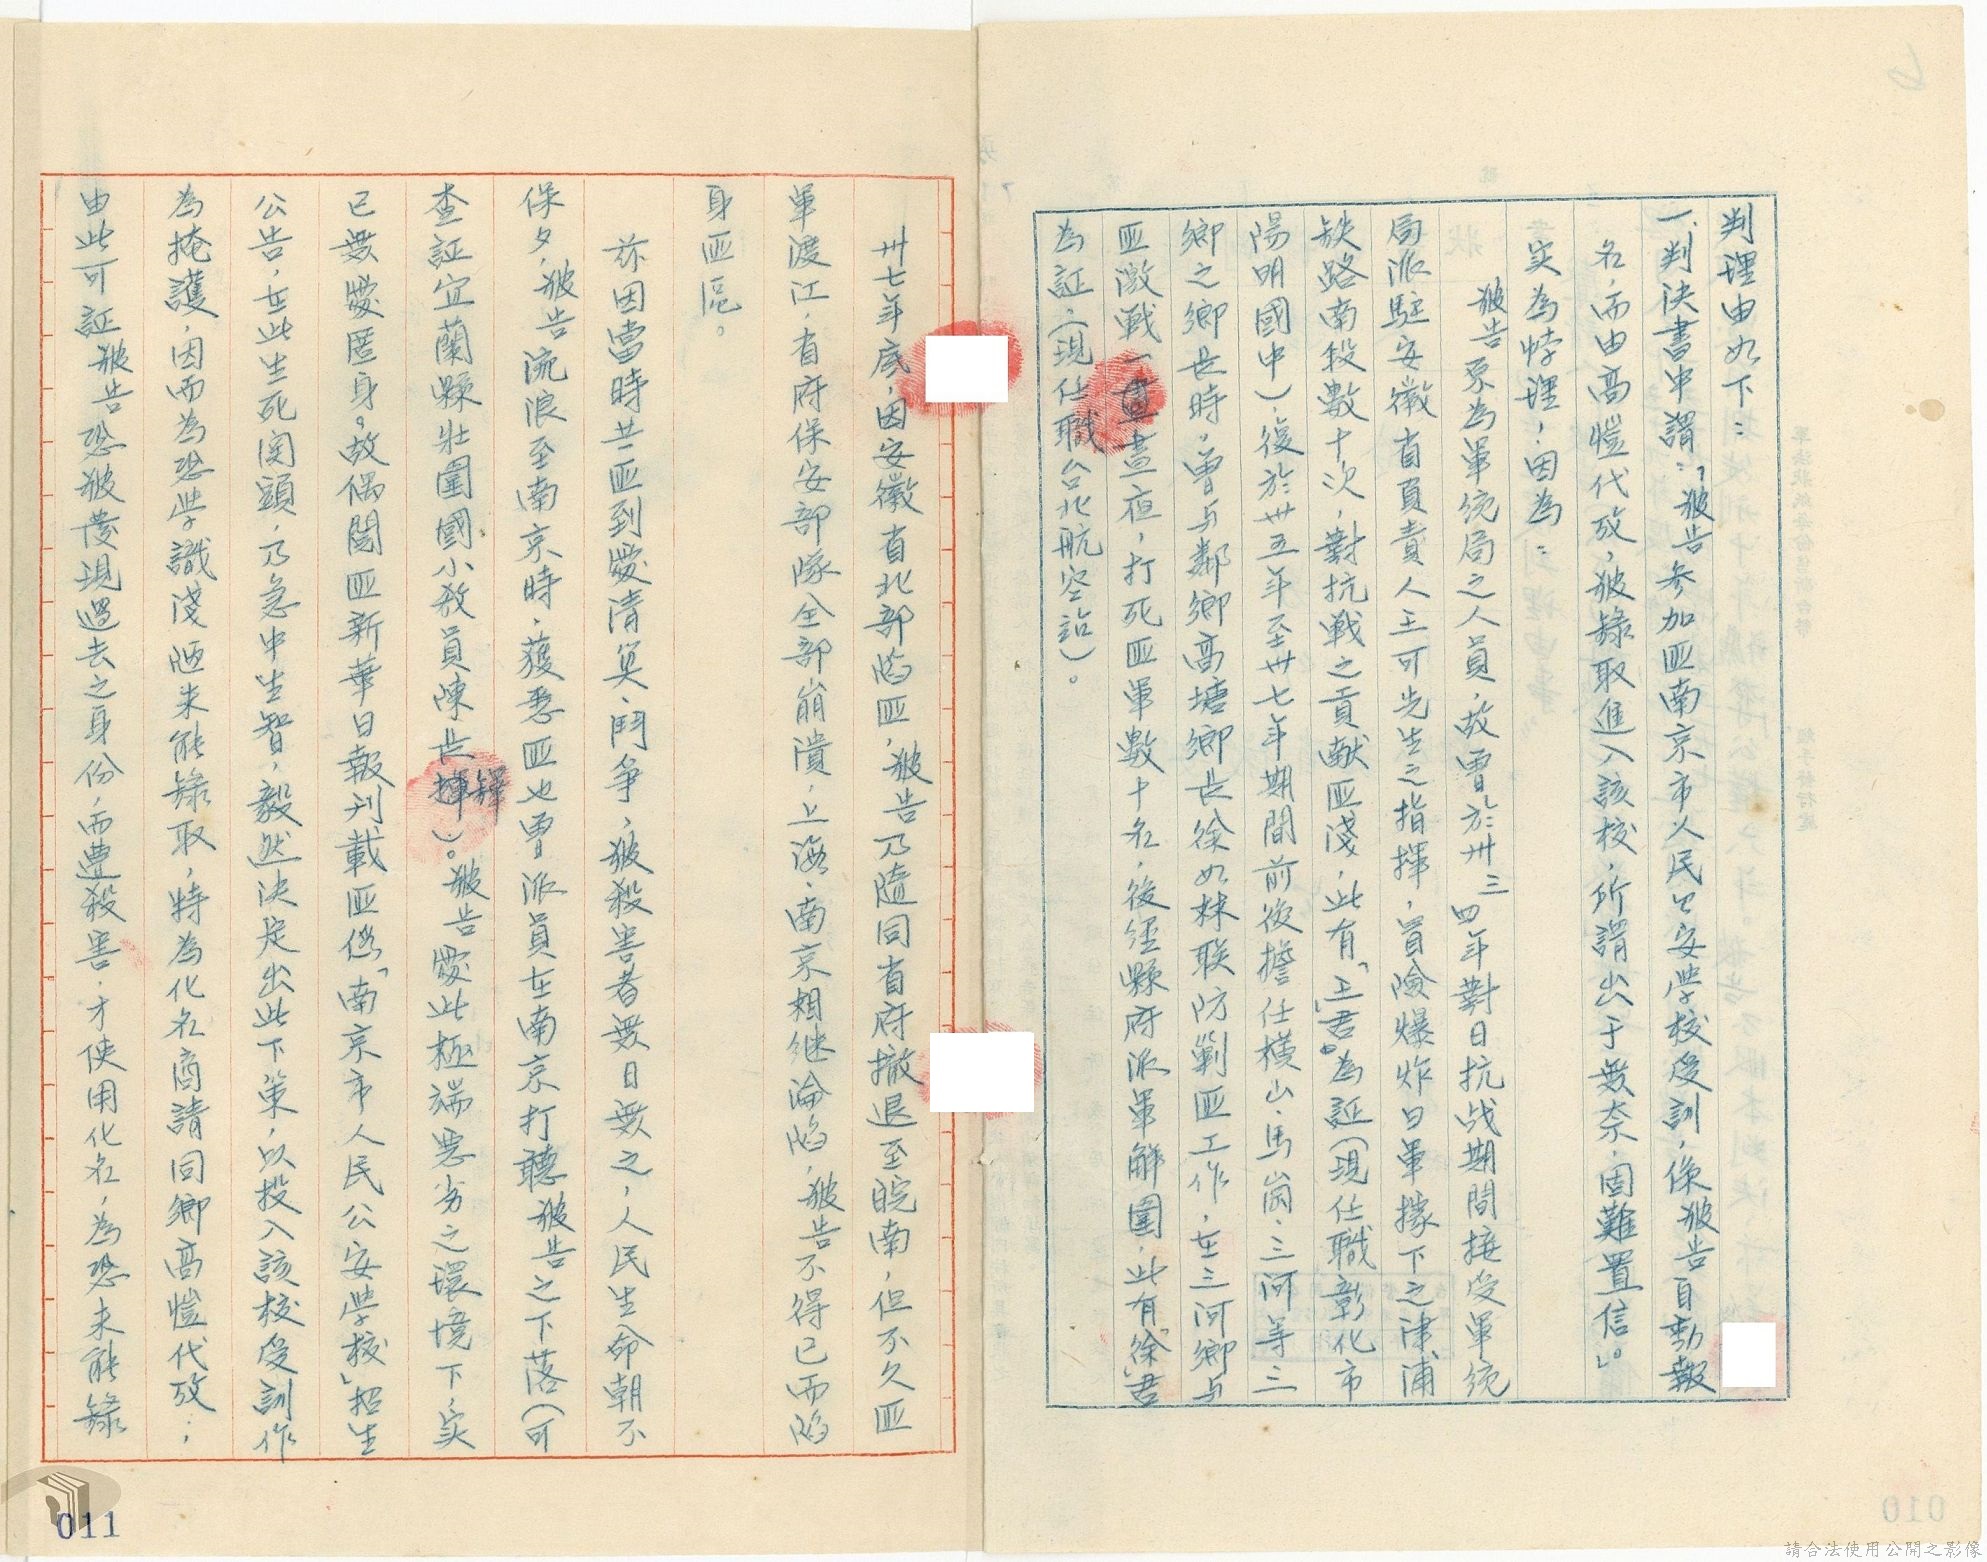 判理由如下：
一、判決書中謂：「被告參加匪南京市人民公安学校受訓，係被告自動報
名，而由高愷代攷，被錄取進入該校，所謂出于無奈，固難置信」。
实為悖理，因為：
被告原為軍統局之人員，故曾於卅三四年對日抗战期間接受軍統
局派駐安徽省負責人王可先生之指揮，冒險爆炸日軍據下之津浦
鉄路南段數十次，對抗戰之貢献匪淺，此有「王」君。為証（現任職彰化市
陽明國中），復於卅五年至卅七年期間前後擔任橫山、馬崗、三河等三
鄉之鄉長時，曾与鄰鄉高塘鄉長徐如林联防剿匪工作，在三河鄉与
匪激戰一晝夜，打死匪軍數十名，後經縣府派軍解圍，此有「徐」君
為証，（現任職台北航空站）。
卅七年底，因安徽省北部陷匪，被告乃隨同省府撤退至皖南，但不久匪
軍渡江，省府保安部隊全部崩潰，上海、南京相继淪陷，被告不得已而陷
身匪區。
茲因當時共匪到處清算、鬥爭，被殺害者無日無之，人民生命朝不
保夕，被告流浪至南京時，獲悉匪也曾派員在南京打聽被告之下落（可
查証宜蘭縣壯圍國小教員陳世鐸）。被告處此極端惡劣之環境下，实
已無處匿身。故偶閱匪新華日報刊載匪偽「南京市人民公安学校」招生
公告，在此生死関頭，乃急中生智，毅然決定出此下策，以投入該校受訓作
為掩護，因而為恐学識淺陋未能錄取，特為化名商請同鄉高愷代攷；
由此可証被告恐被發現過去之身份，而遭殺害，才使用化名，為恐未能錄
011
010
請合法使用公開之影像